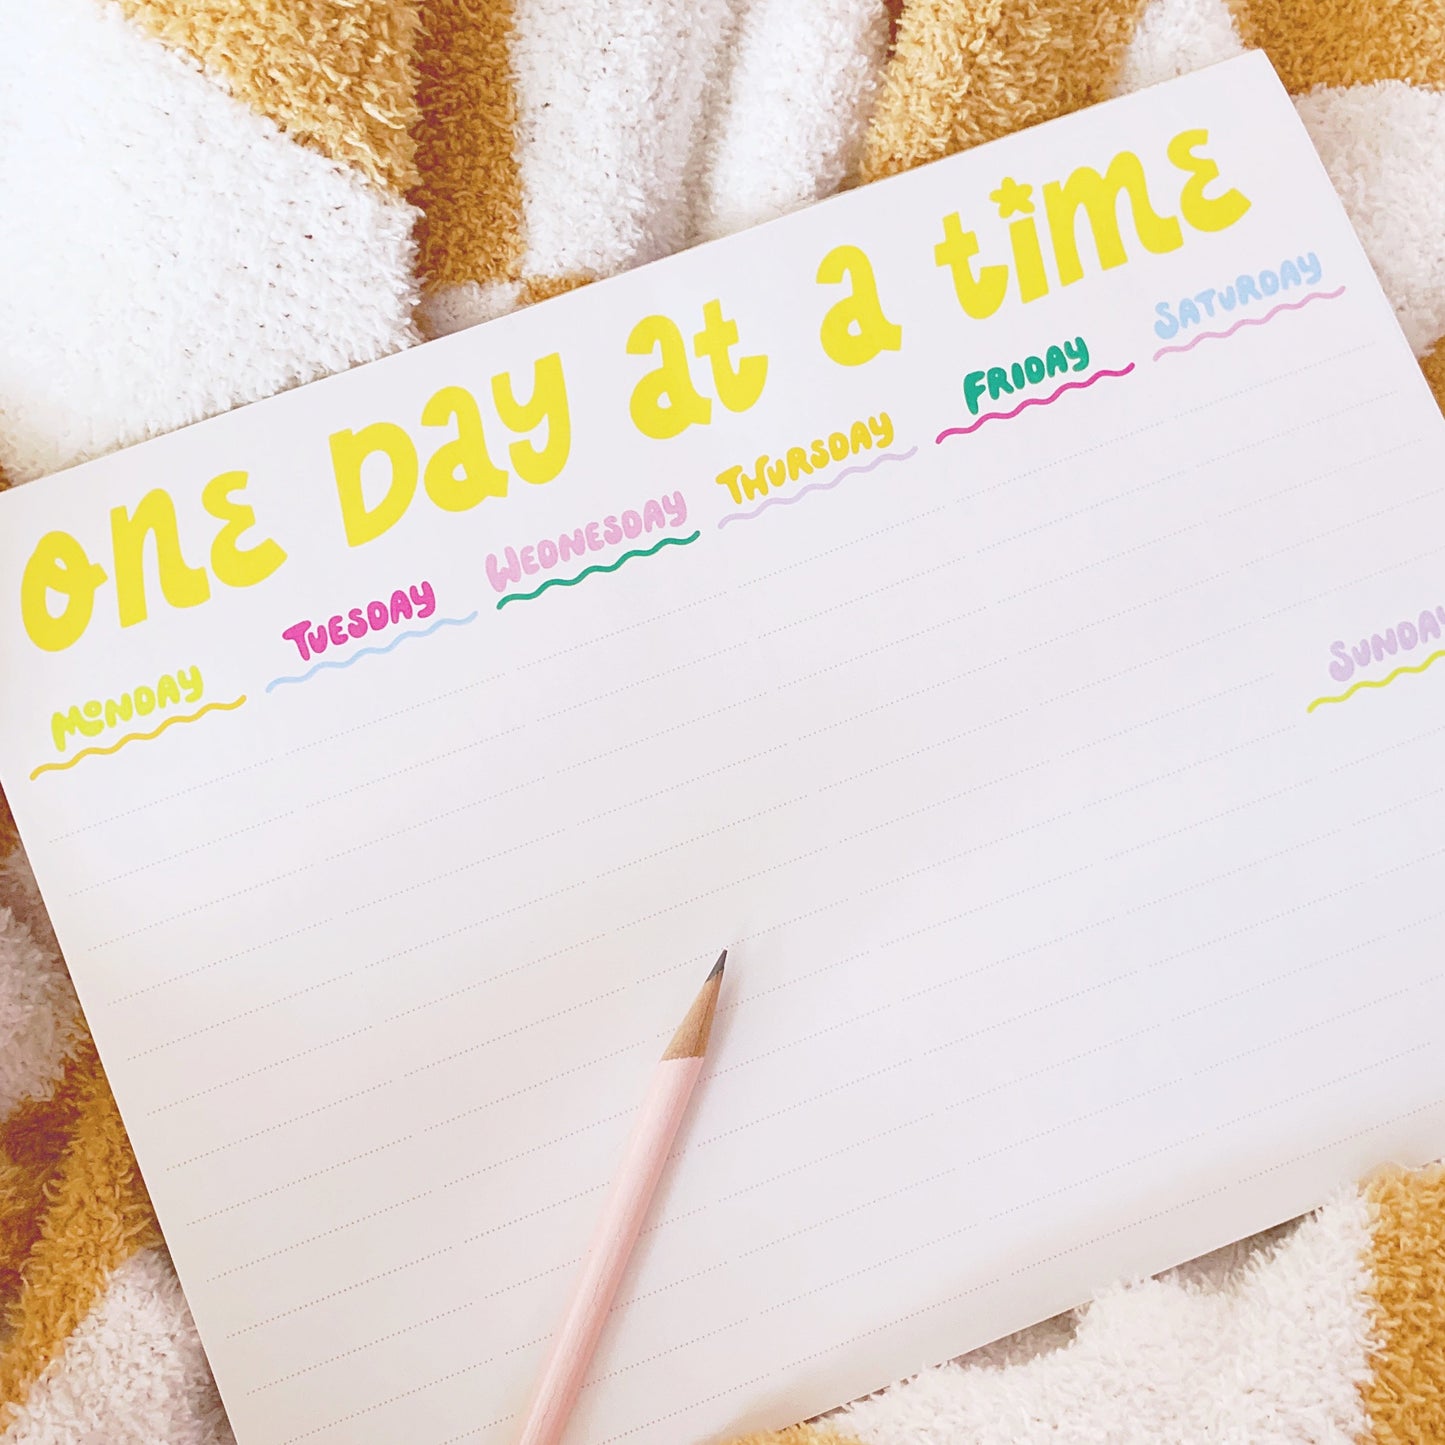 ONE DAY at a time
MONDAY
TUESDAY
WEDNESDAY
THURSDAY
FRIDAY
SATURDAY
SUNDAY